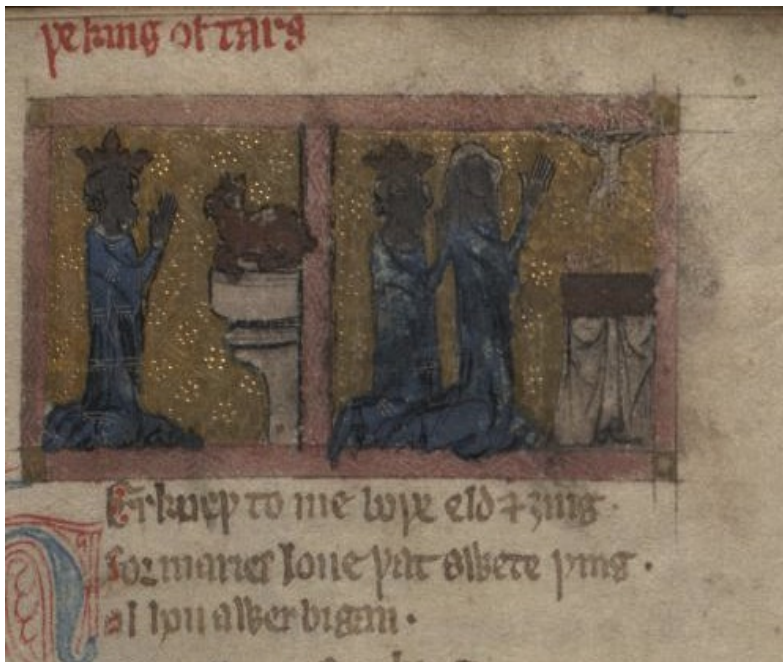 þe king of tars
Herkneþ to me boþe eld & ȝing
for maries loue þat swete þing
al hou a wer bigan